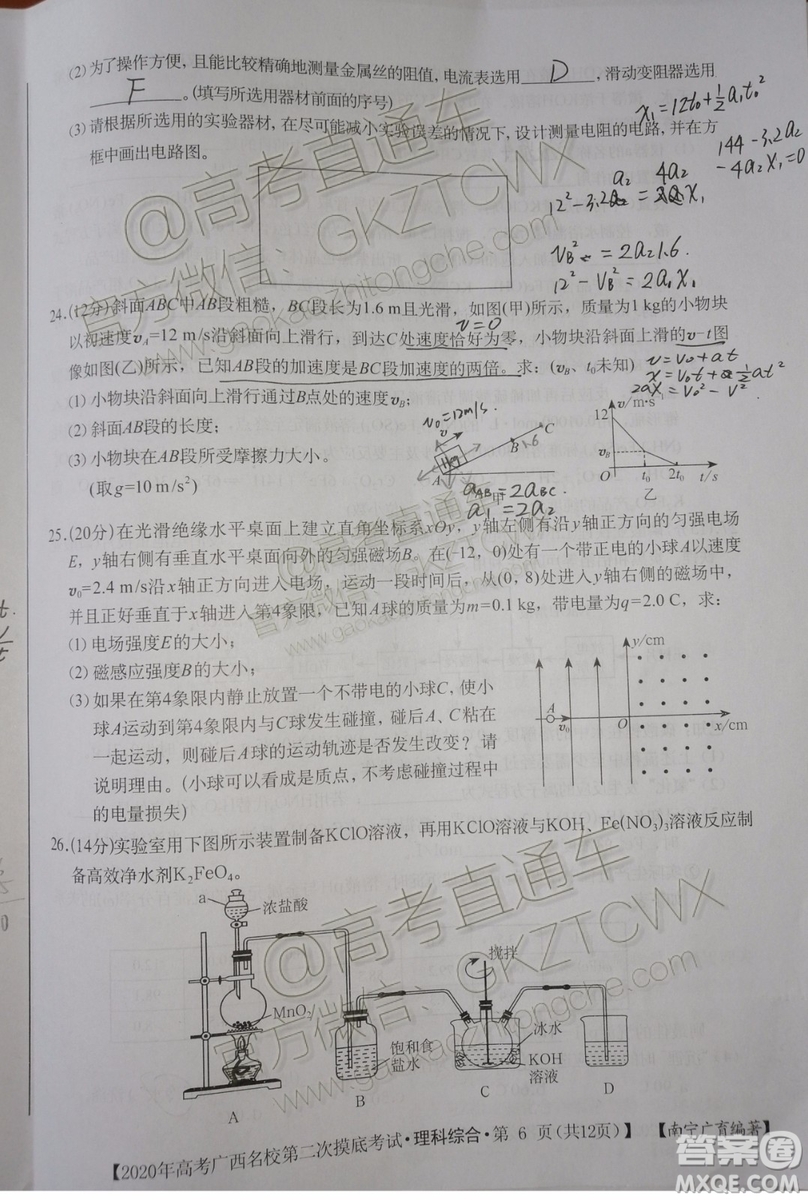 (2)为了操作方便,且能比较精确地测量金属丝的阻值,电流表选用 D ,滑动变阻器选用
F 。(填写所选用器材前面的序号)
x₁=12t₀+½a₁t₀²
(3)请根据所选用的实验器材,在尽可能减小实验误差的情况下,设计测量电阻的电路,并在方
框中画出电路图。
144-3.2a₂
-4a₂x₁=0
a₂ 4a₂
v_B²=2a₂1.6
12²-v_B²=2a₁x₁
24.(12分)斜面ABC中AB段粗糙,BC段长为1.6 m且光滑,如图(甲)所示,质量为1 kg的小物块
v=0
以初速度v_A=12 m/s沿斜面向上滑行,到达C处速度恰好为零,小物块沿斜面上滑的v-t图
像如图(乙)所示,已知AB段的加速度是BC段加速度的两倍。求:(v_B、t₀未知)
v=v₀+at
x=v₀t+½at²
2ax=v₀²-v²
(1)小物块沿斜面向上滑行通过B点处的速度v_B;
(2)斜面AB段的长度;
(3)小物块在AB段所受摩擦力大小。
(取g=10 m/s²)
v₀=12m/s
1kg
A
B
C
1.6
甲
a_AB=2a_BC
a₁=2a₂
v/m·s⁻¹
12
v_B
O
t₀
2t₀
t/s
乙
25.(20分)在光滑绝缘水平桌面上建立直角坐标系xOy,y轴左侧有沿y轴正方向的匀强电场
E,y轴右侧有垂直水平桌面向外的匀强磁场B。在(-12,0)处有一个带正电的小球A以速度
v₀=2.4 m/s沿x轴正方向进入电场,运动一段时间后,从(0,8)处进入y轴右侧的磁场中,
并且正好垂直于x轴进入第4象限,已知A球的质量为m=0.1 kg,带电量为q=2.0 C,求:
(1)电场强度E的大小;
(2)磁感应强度B的大小;
(3)如果在第4象限内静止放置一个不带电的小球C,使小
球A运动到第4象限内与C球发生碰撞,碰后A、C粘在
一起运动,则碰后A球的运动轨迹是否发生改变?请
说明理由。(小球可以看成是质点,不考虑碰撞过程中
的电量损失)
y/cm
A
v₀
O
x/cm
26.(14分)实验室用下图所示装置制备KClO溶液,再用KClO溶液与KOH、Fe(NO₃)₃溶液反应制
备高效净水剂K₂FeO₄。
a
浓盐酸
MnO₂
饱和食
盐水
搅拌
冰水
KOH
溶液
A
B
C
D
【2020年高考广西名校第二次摸底考试·理科综合·第 6 页(共12页)】 【南宁广育编著】
@高考直通车
官方微信:GKZTCWX
www.gaokaozhitongche.com
@高考直通车
官方微信:GKZTCWX
www.gaokaozhitongche.com
答案圈
MXQE.COM